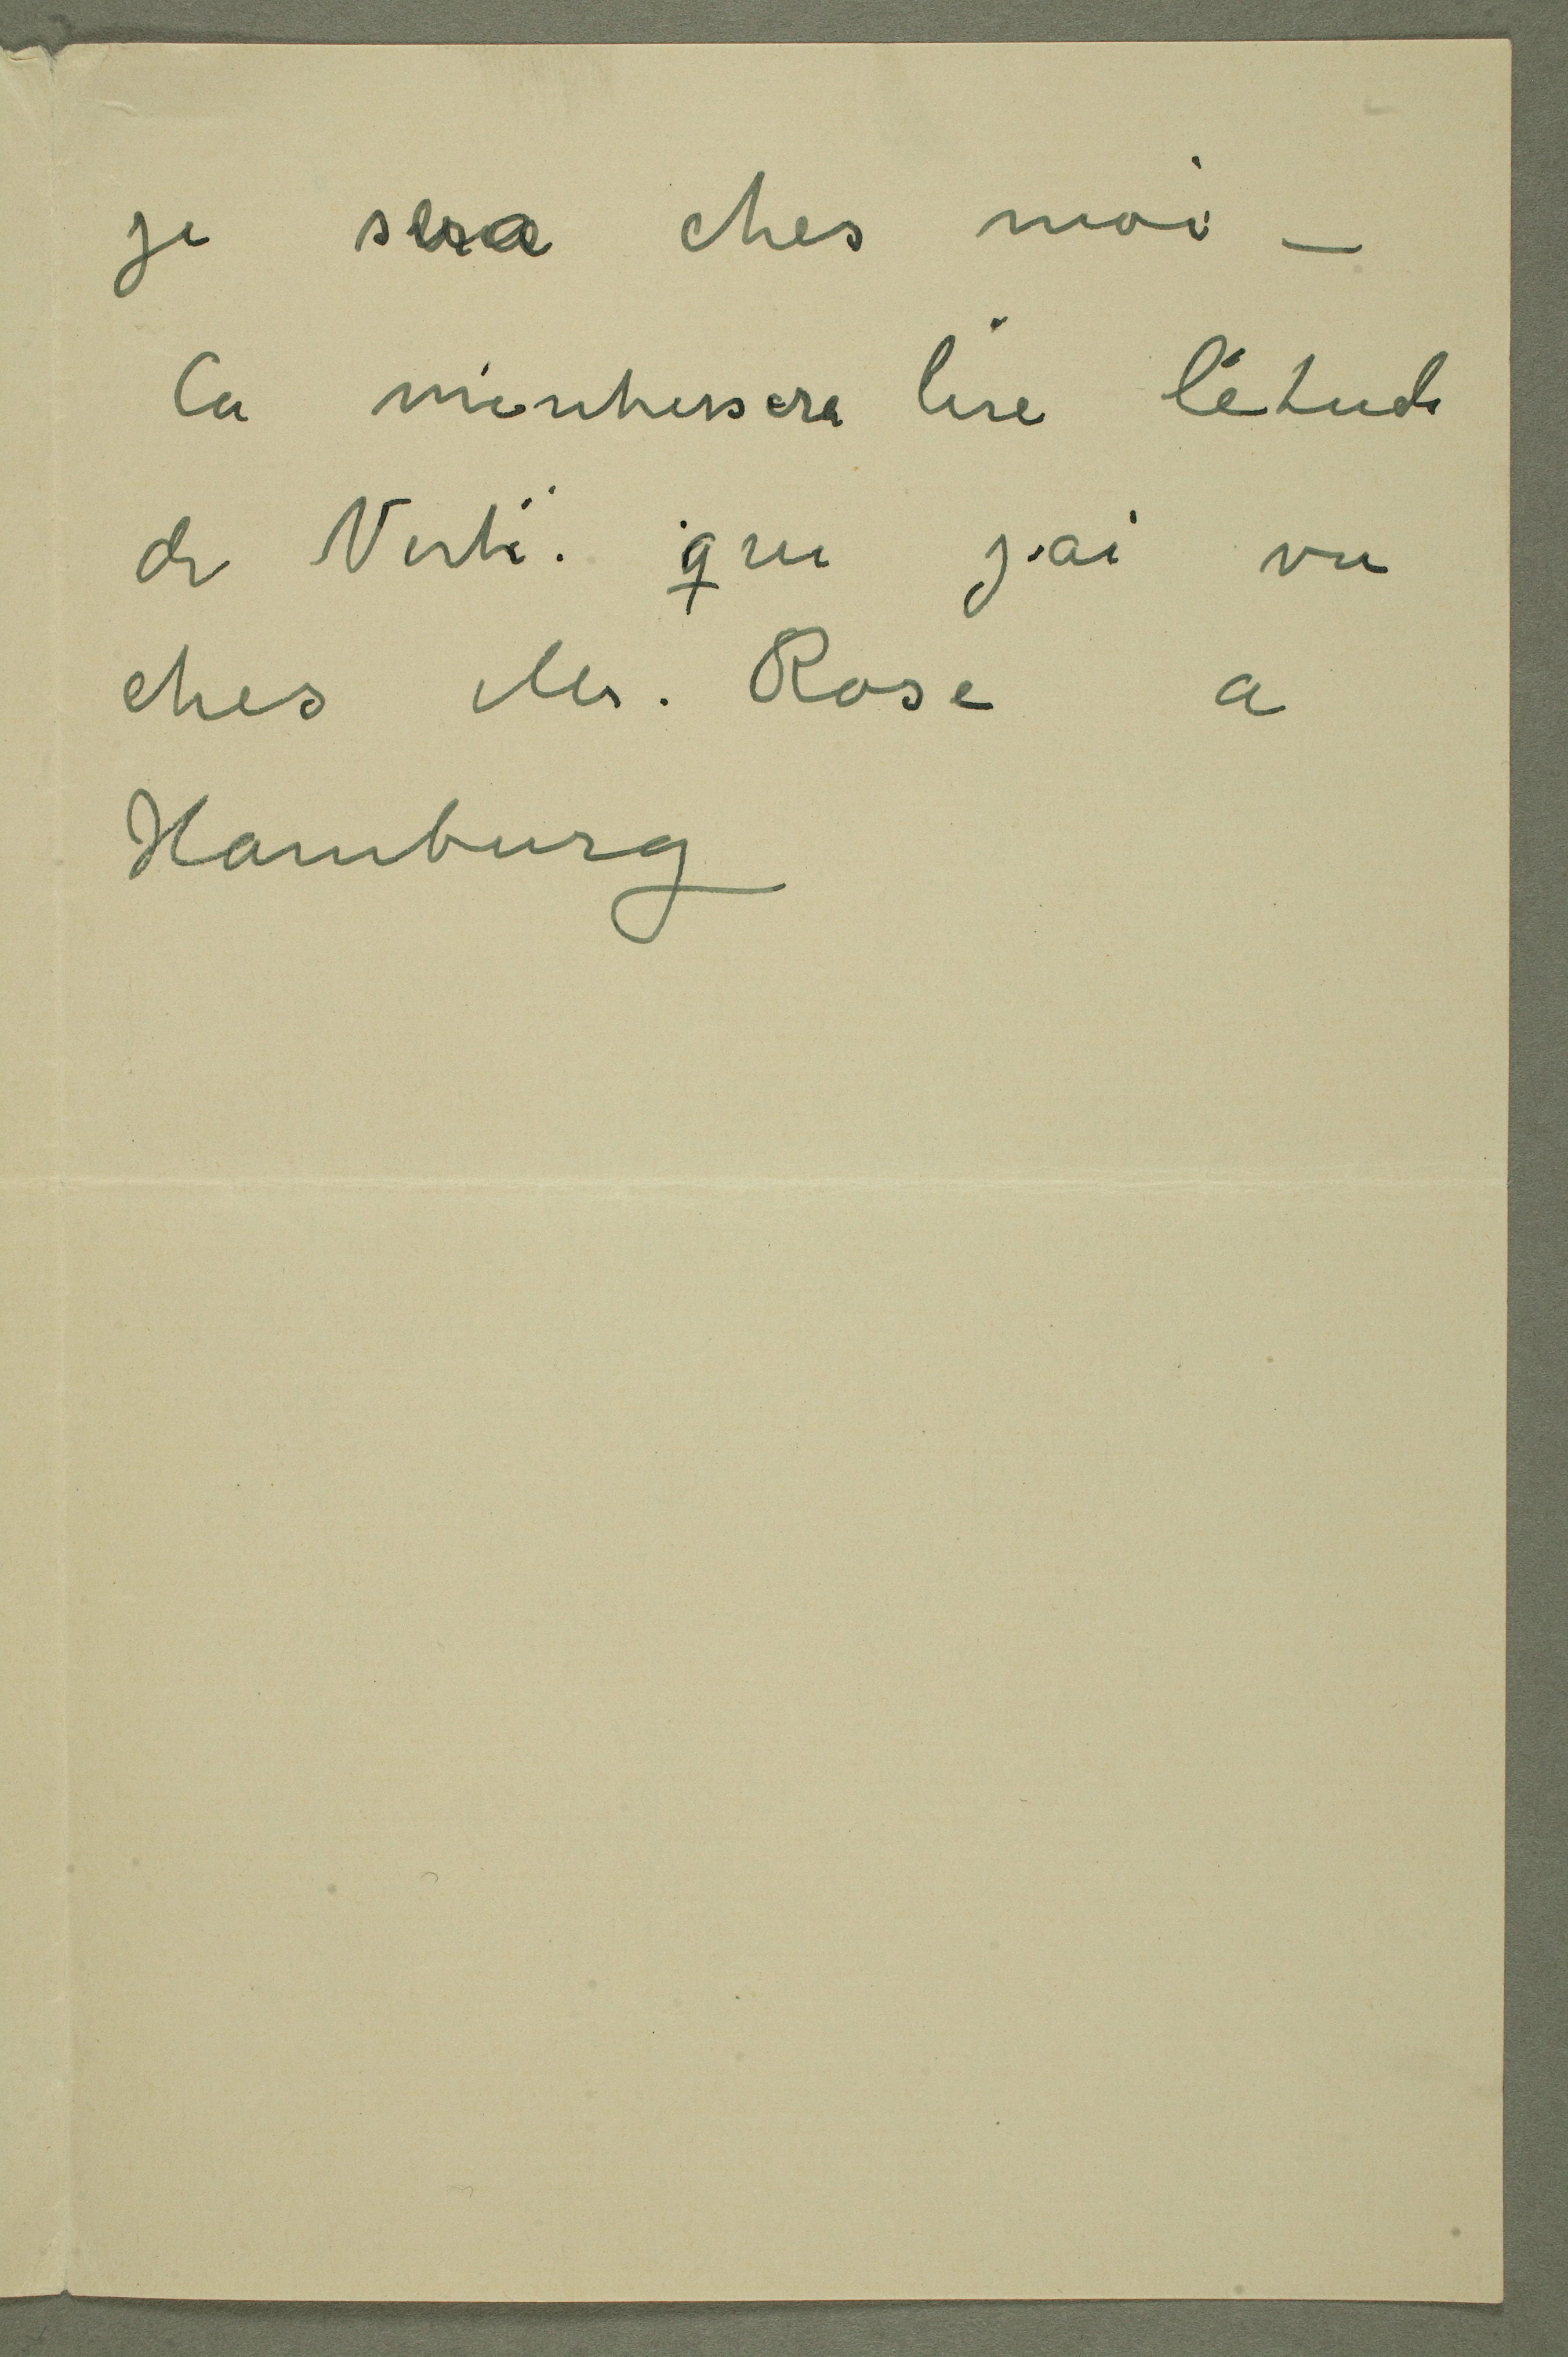 je sera ches moi –
Ca m'inthersera lire l'étude
de Verti. que j'ai vu
ches Mr. Rose a
Hamburg